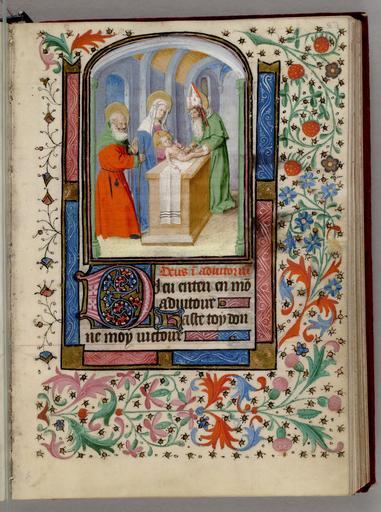 Deus ī adiutoriū
Dieu enten en mō
adiutoire
Haste toy don
ne moy victoire